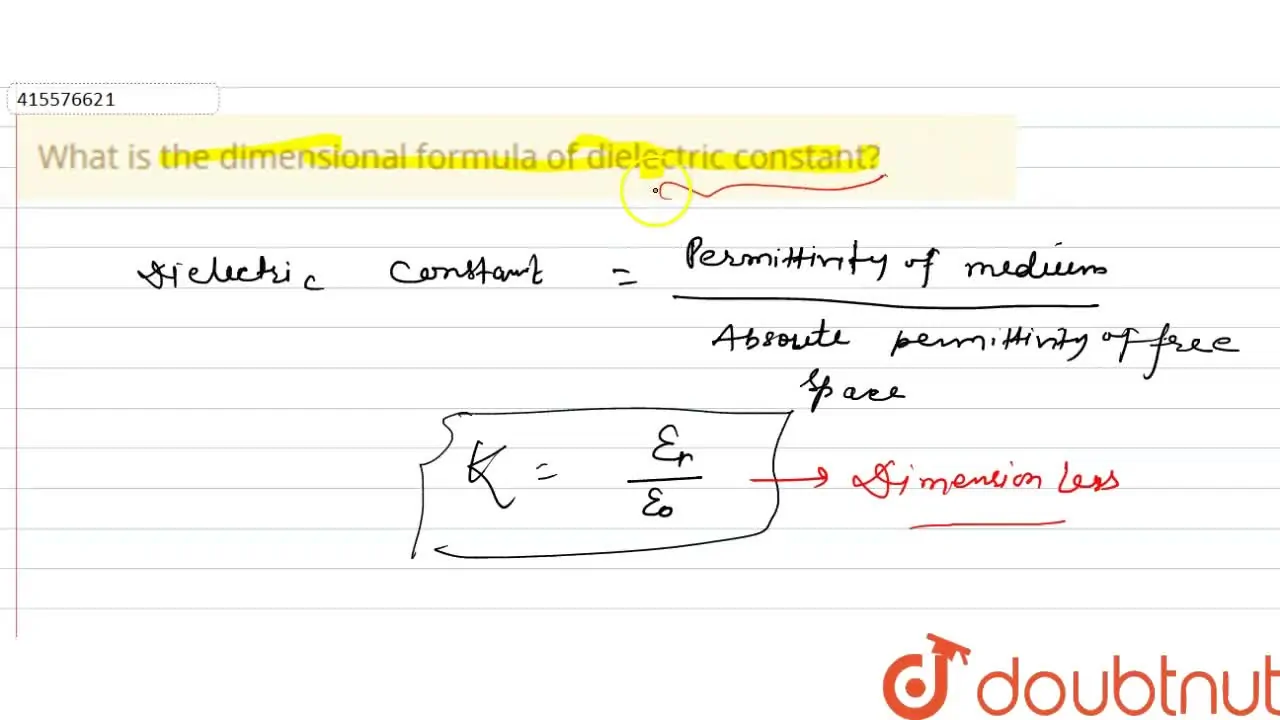 415576621
What is the dimensional formula of dielectric constant?
Dielectric constant = Permittivity of medium
Absoute permittivity of free
space
K = εr
ε0
→ Dimension less
doubtnut